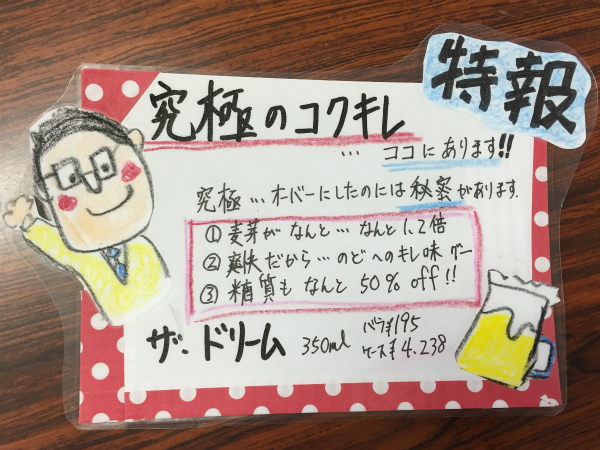 特報
究極のコクキレ
… ココにあります!!
究極…オーバーにしたのには秘密があります.
① 麦芽が なんと… なんと 1.2倍
② 爽快だから… のどへのキレ味 グー
③ 糖質も なんと 50% off!!
ザ・ドリーム 350ml
バラ¥195
ケース¥4.238